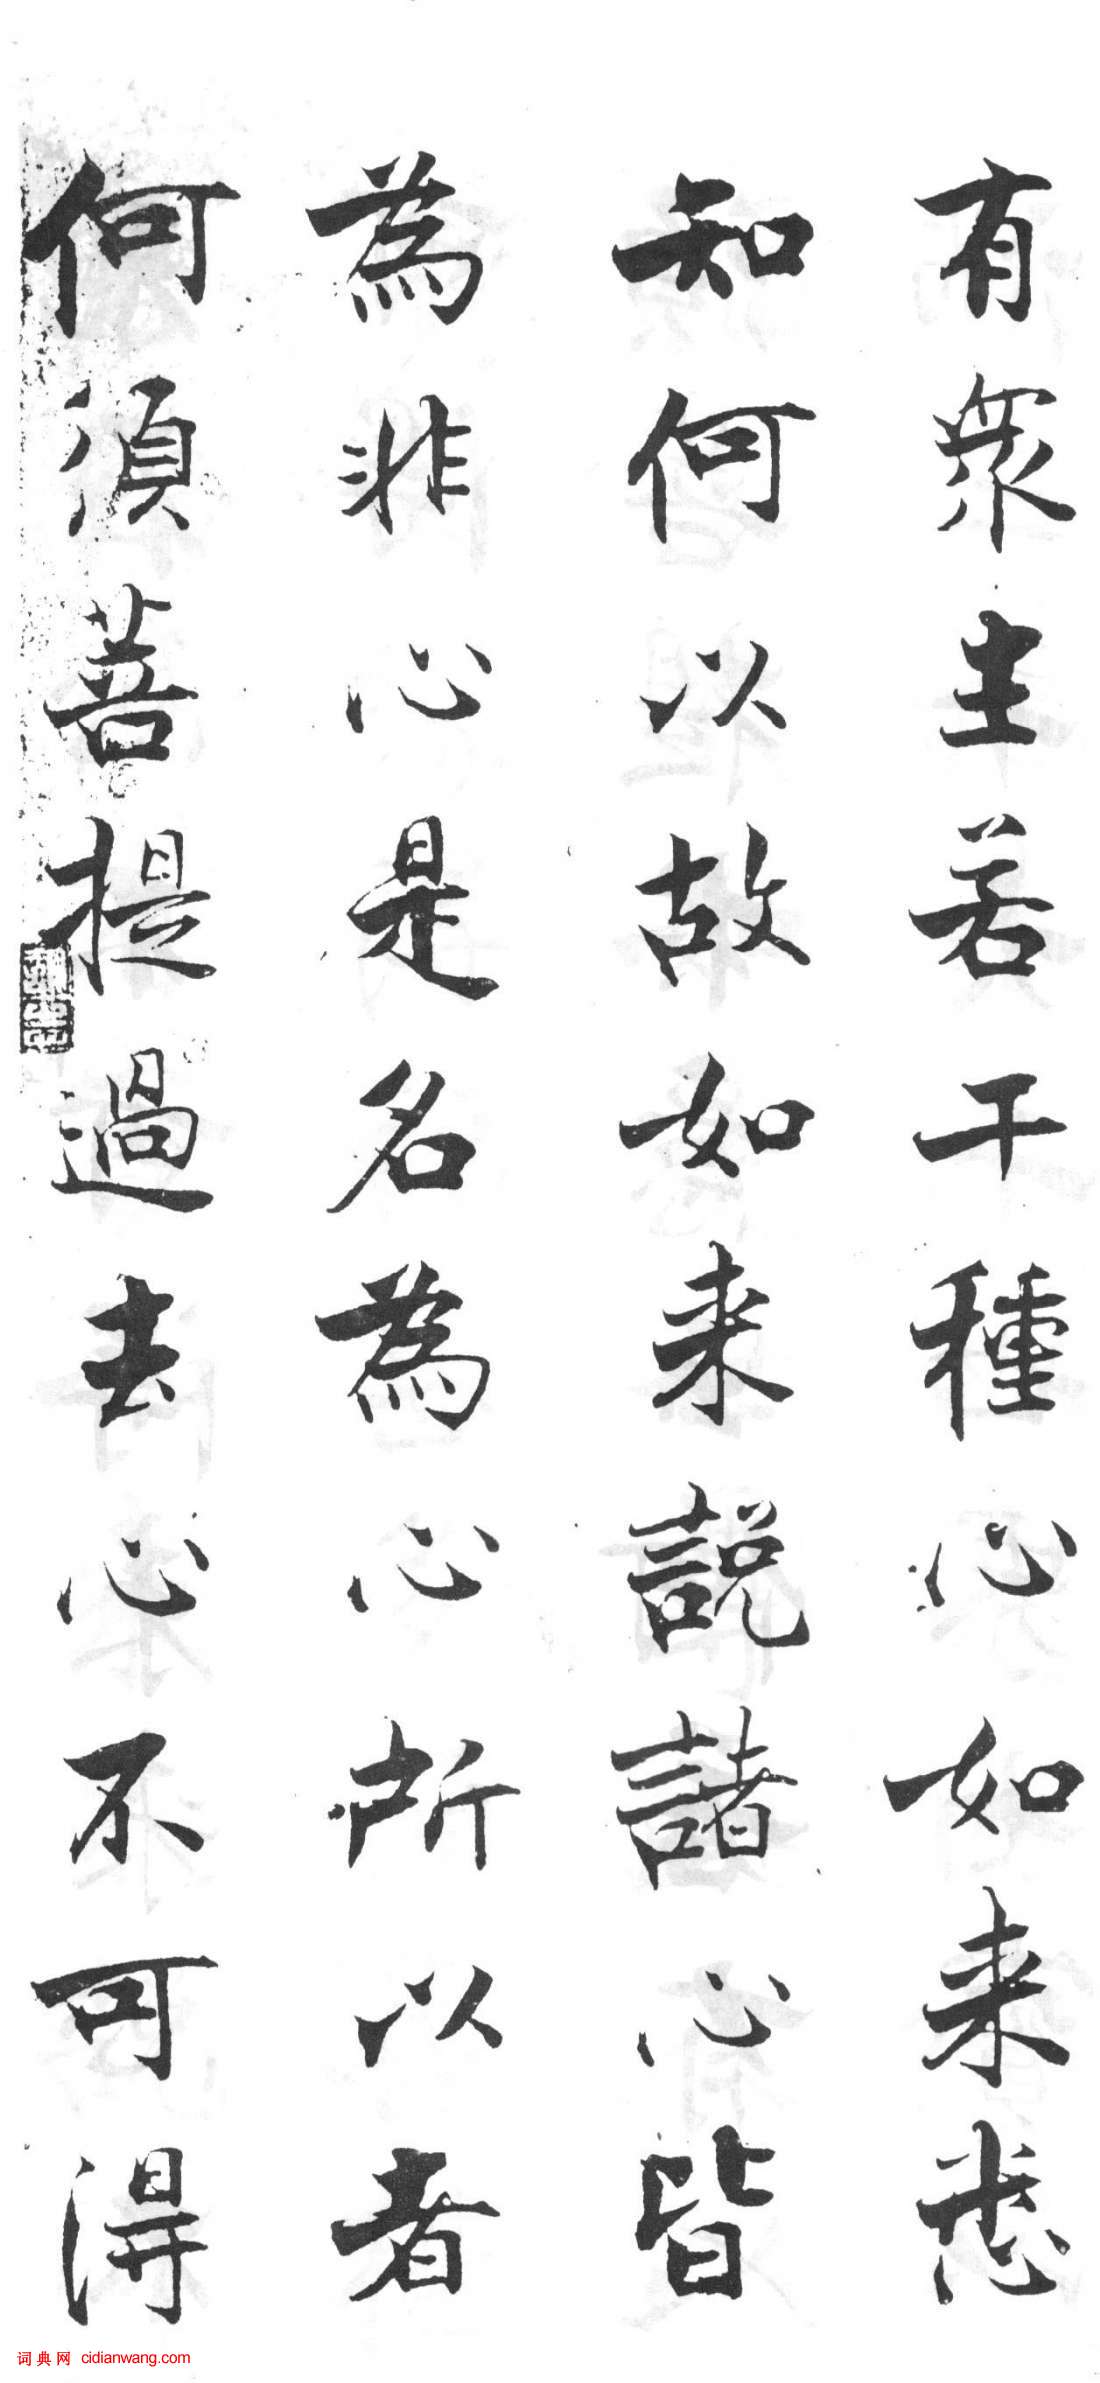 有衆生若干種心如来悉
知何以故如来說諸心皆
為非心是名為心所以者
何須菩提過去心不可得
词典网 cidianwang.com